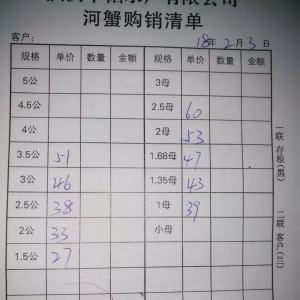 有限公司
河蟹购销清单
客户: 18年2月3日
规格 单价 数量 金额 规格 单价 数量 金额
5公 3母
4.5公 2.5母 60
4公 2母 53
3.5公 51 1.68母 47
3公 46 1.35母 43
2.5公 38 1母 39
2公 33 小母
1.5公 27
一联存根(黑)
二联客户(兰)